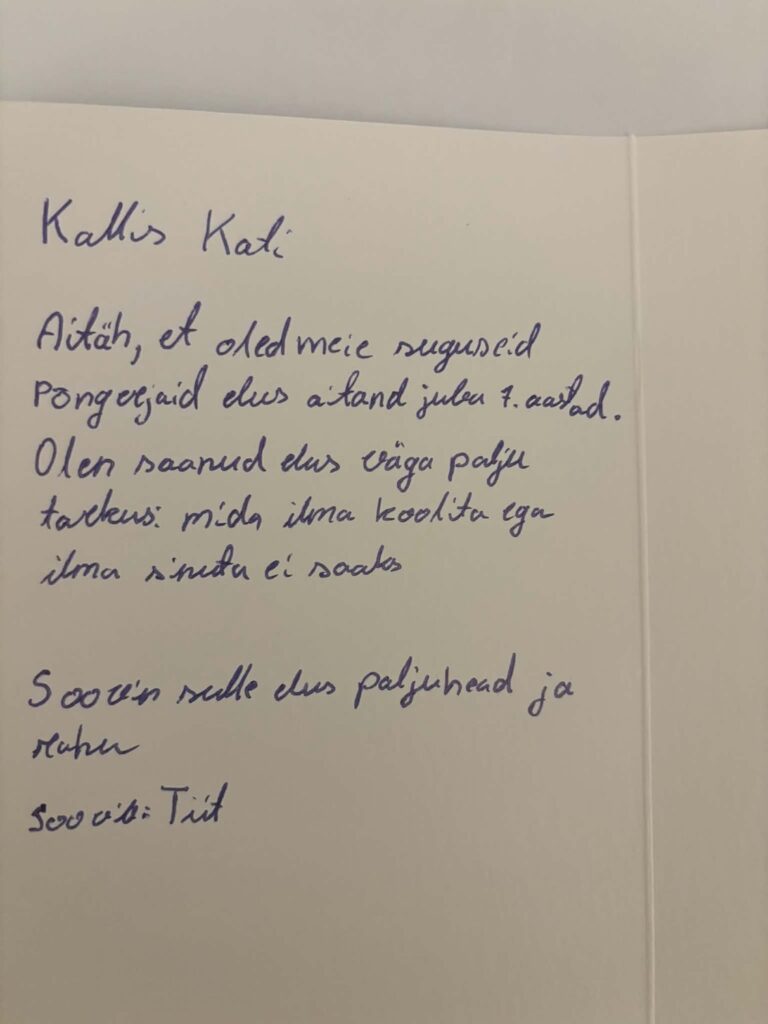 Kallis Kati
Aitäh, et oled meie suguseid
Põngerjaid elus aitand juba 7. aastad.
Olen saanud elus väga palju
tarkusi mida ilma koolita ega
ilma sinuta ei saaks
Soovin sulle elus paljuhead ja
rahu
Soovib: Tiit